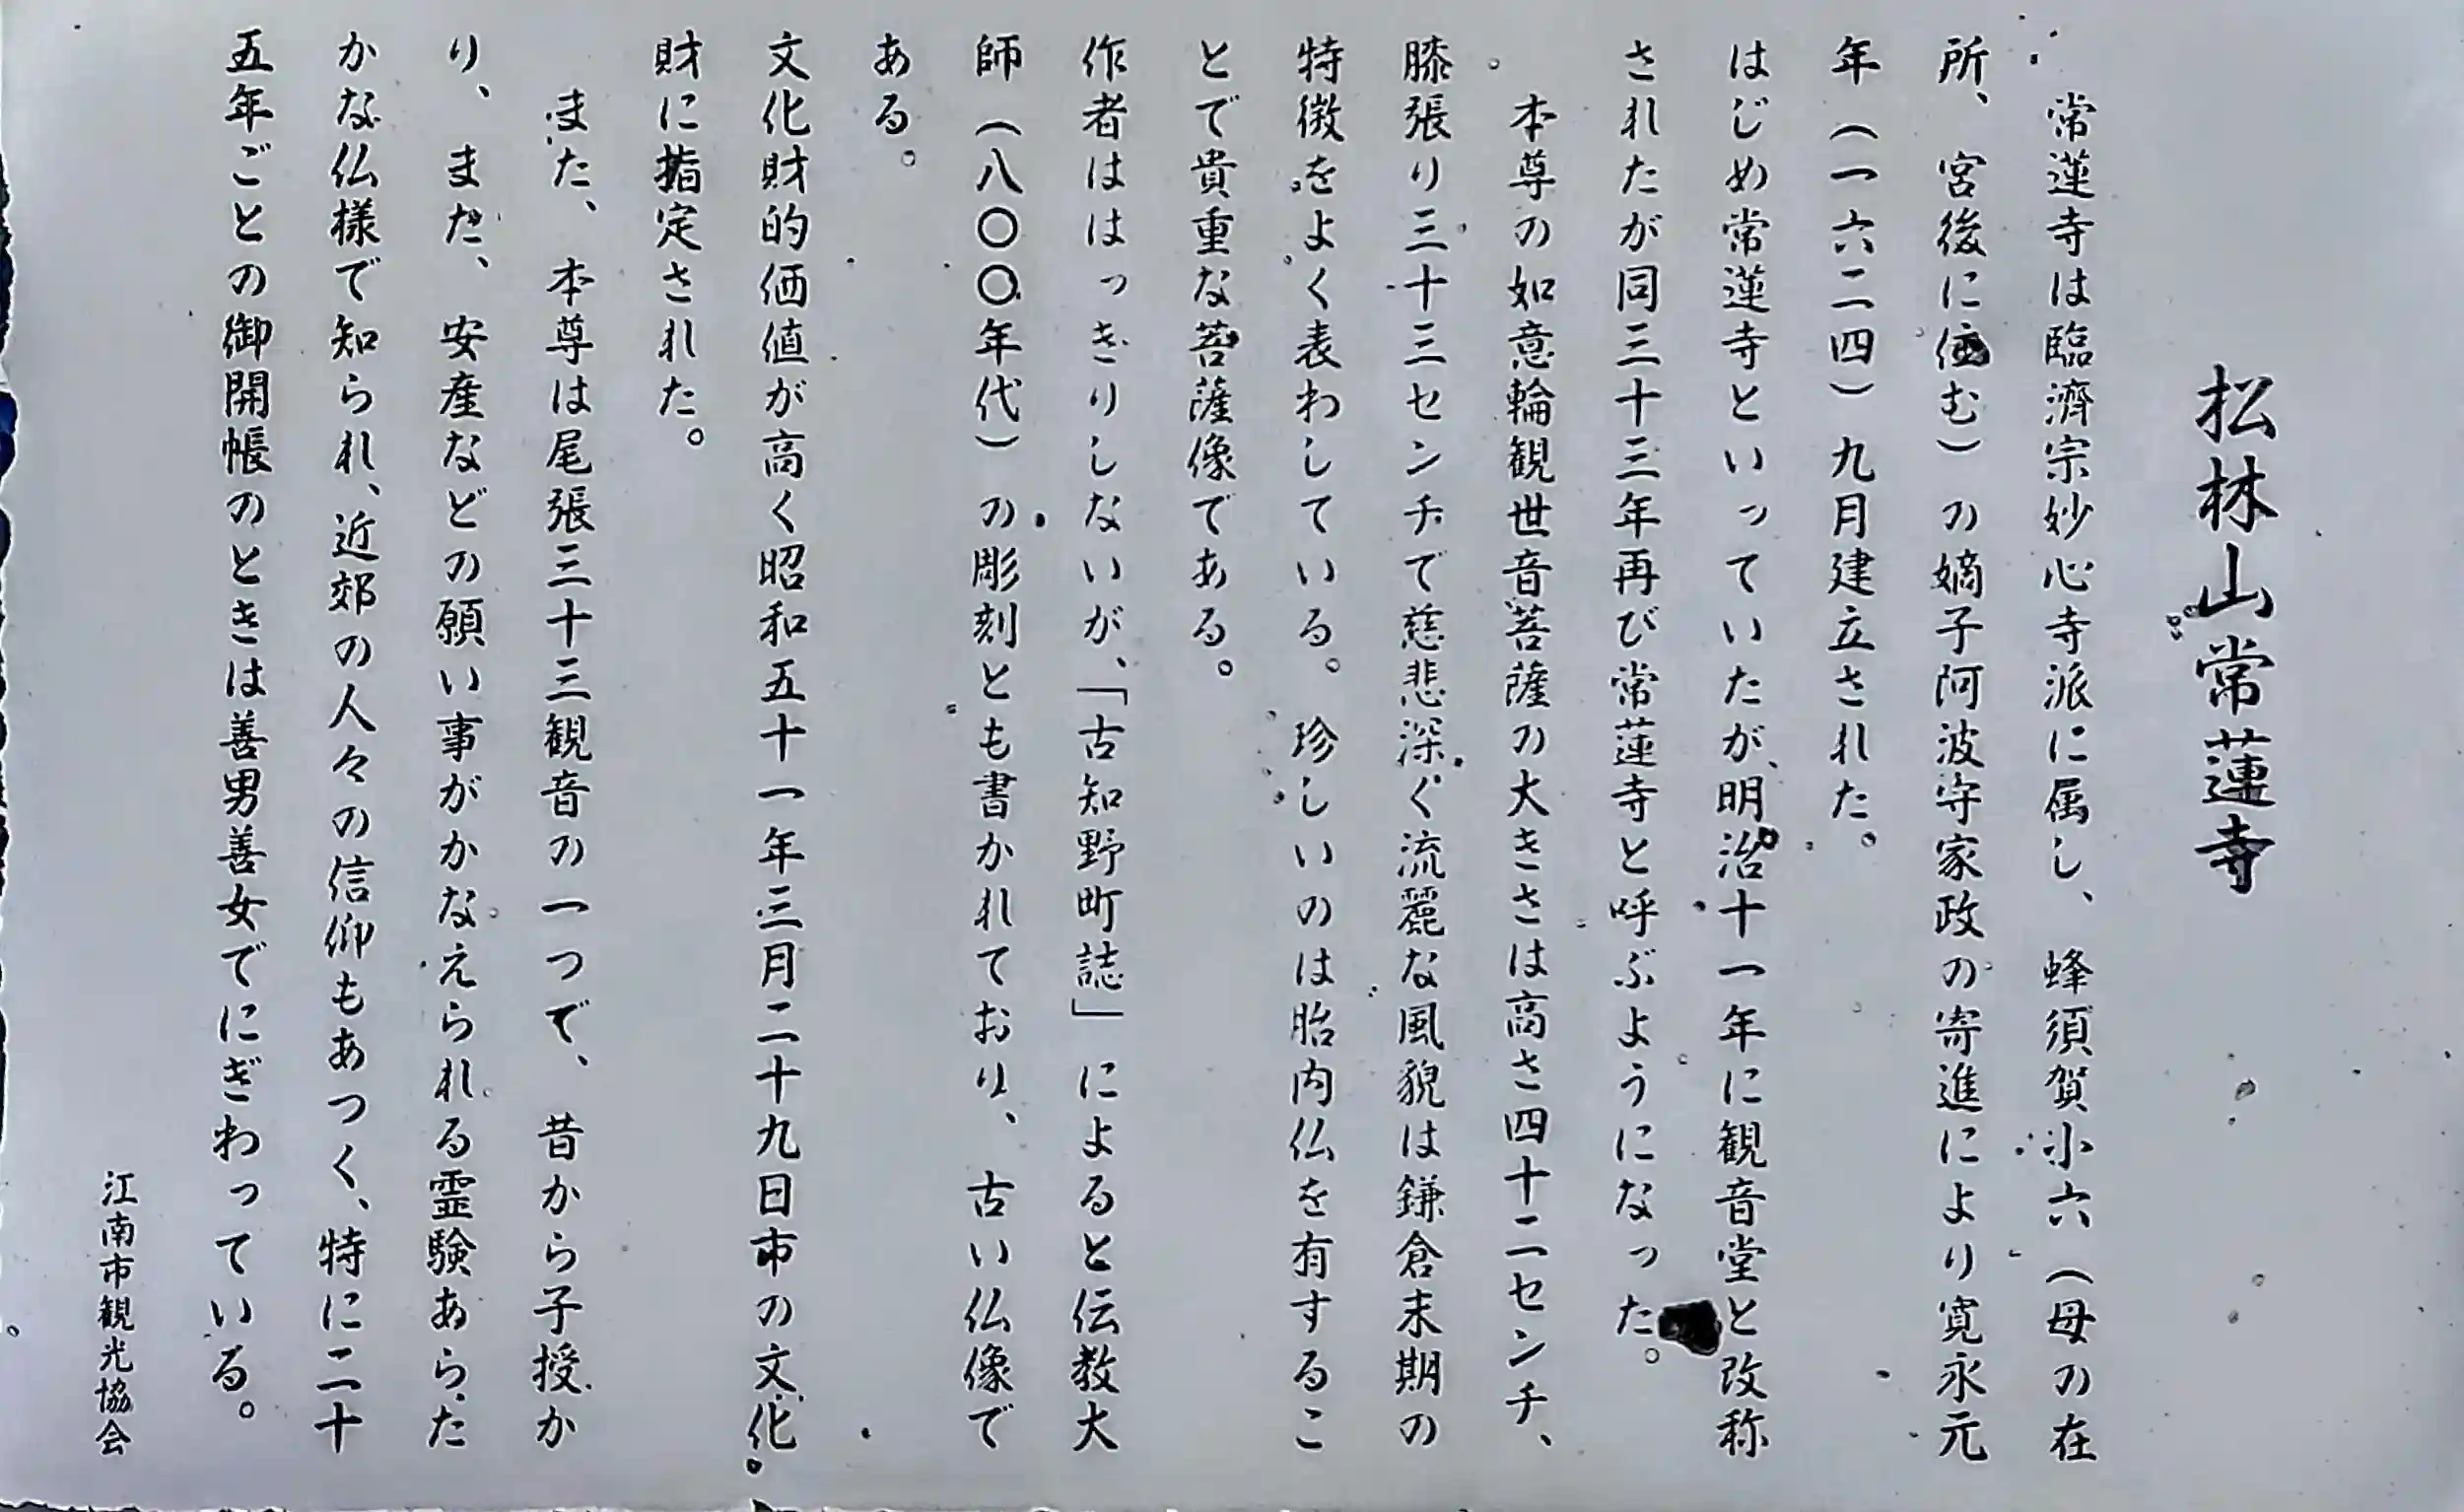 松林山常蓮寺
常蓮寺は臨濟宗妙心寺派に属し、蜂須賀小六（母の在
所、宮後に住む）の嫡子阿波守家政の寄進により寛永元
年（一六二四）九月建立された。
はじめ常蓮寺といっていたが、明治十一年に観音堂と改称
されたが同三十三年再び常蓮寺と呼ぶようになった。
本尊の如意輪観世音菩薩の大きさは高さ四十二センチ、
膝張り三十三センチで慈悲深く流麗な風貌は鎌倉末期の
特徴をよく表わしている。珍しいのは胎内仏を有するこ
とで貴重な菩薩像である。
作者ははっきりしないが、「古知野町誌」によると伝教大
師（八〇〇年代）の彫刻とも書かれており、古い仏像で
ある。
文化財的価値が高く昭和五十一年三月二十九日市の文化
財に指定された。
また、本尊は尾張三十三観音の一つで、昔から子授か
り、また、安産などの願い事がかなえられる霊験あらた
かな仏様で知られ、近郊の人々の信仰もあつく、特に二十
五年ごとの御開帳のときは善男善女でにぎわっている。
江南市観光協会